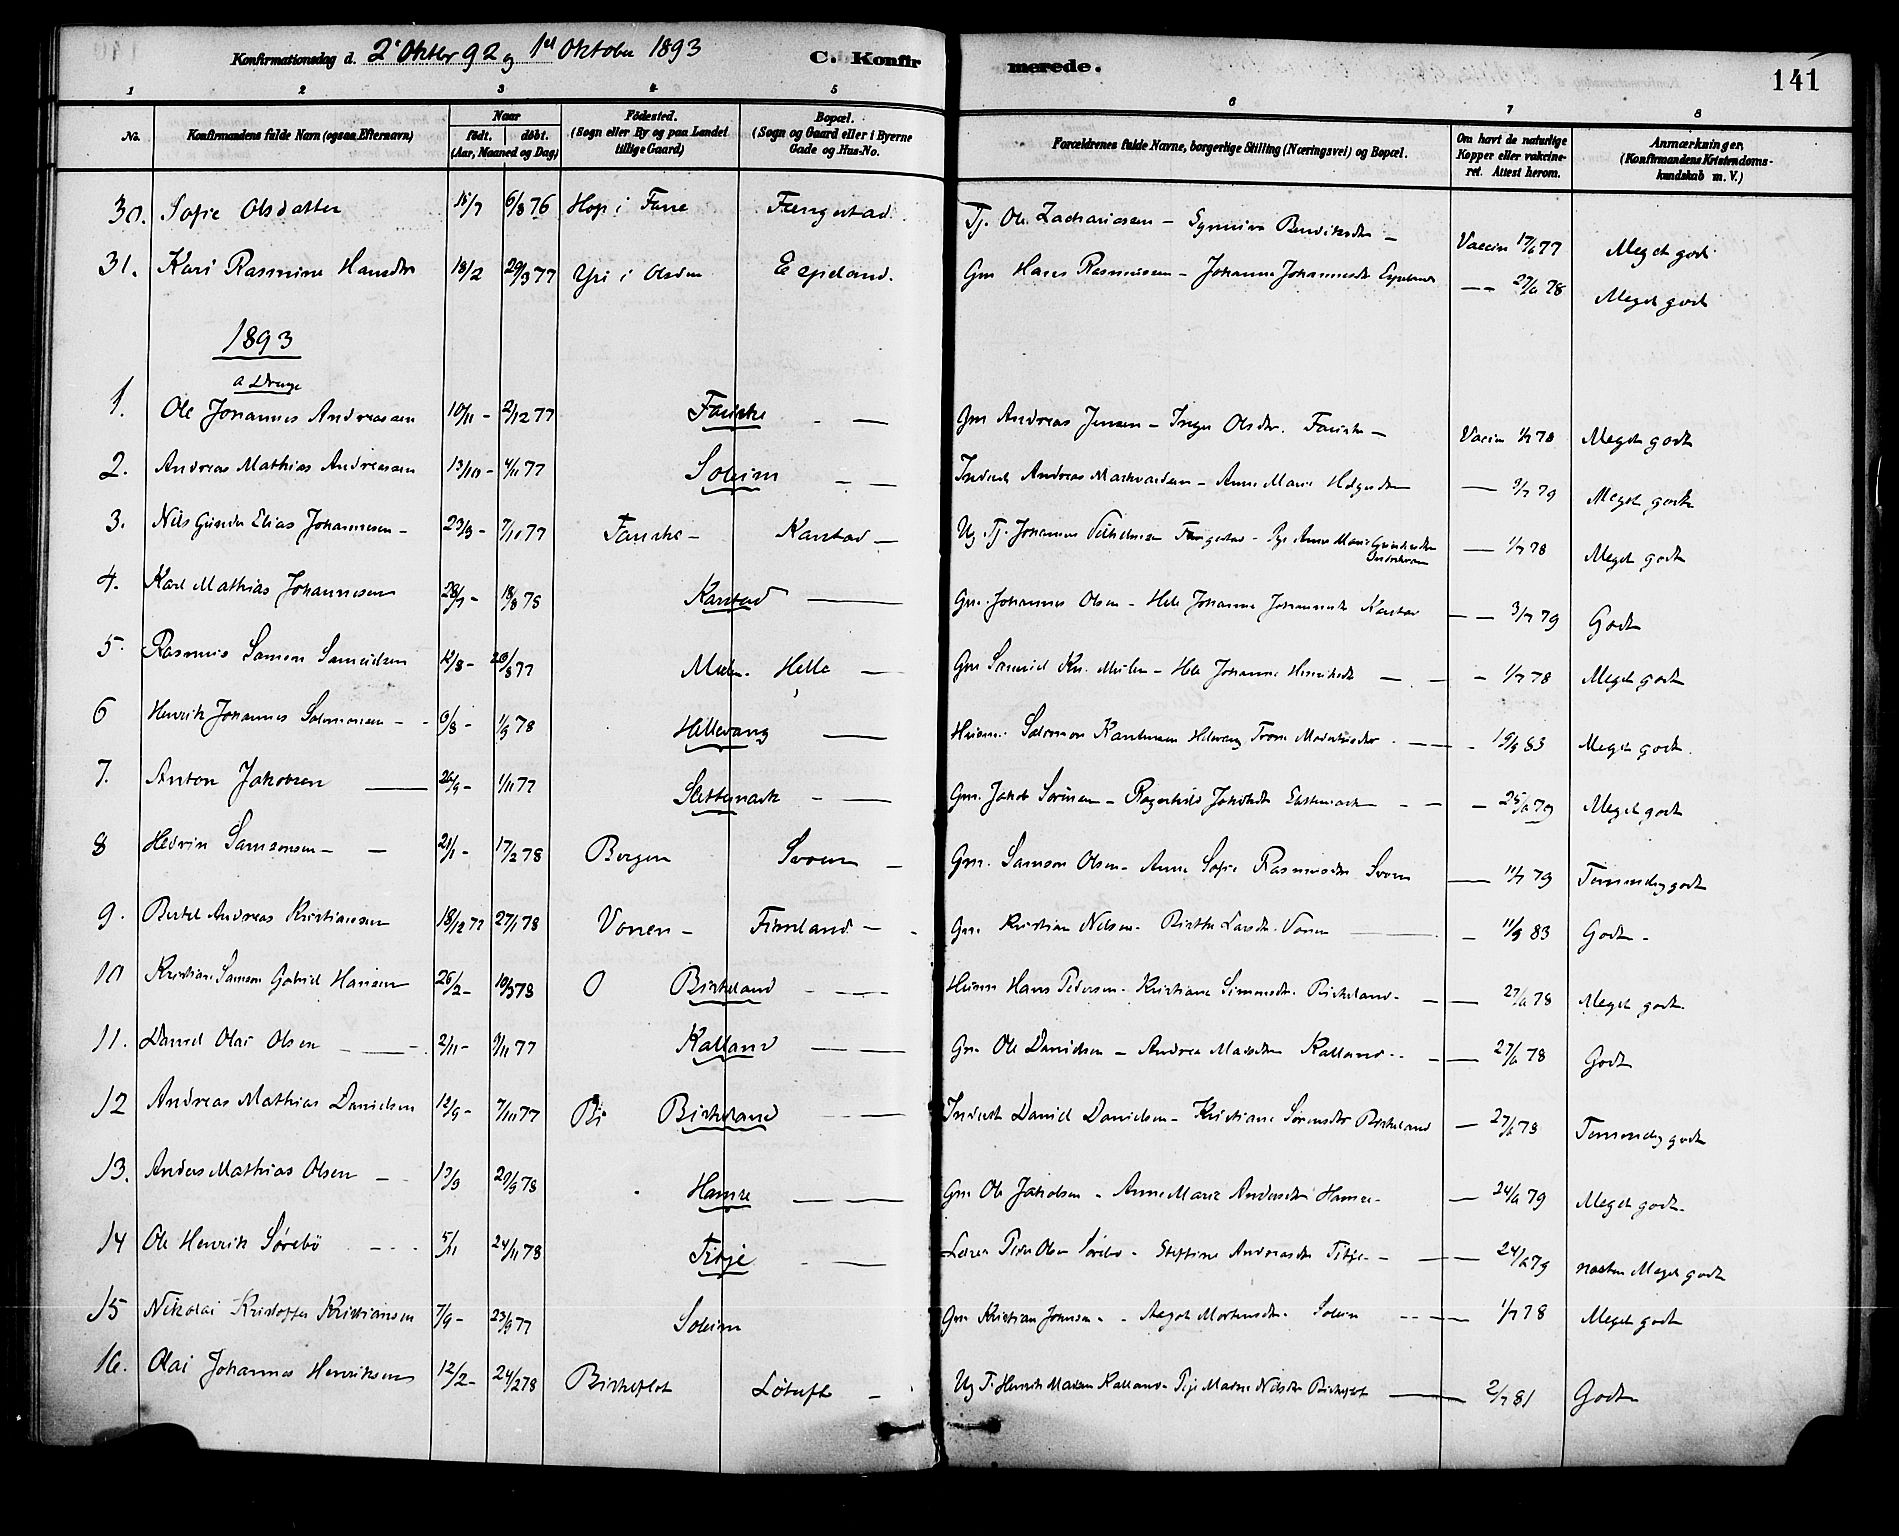 Konfirmationsdag d. 2' Oktbr 92 og 1st Oktober 1893 C. Konfirmerede. 141
1 2 3 4 5 6 7 8
No. Konfirmandens fulde Navn (og saa Efternavn) Naar født. døbt. (Aar, Maaned og Dag) Fødested. (Sogn eller By og paa Landet tillige Gaard) Bopæl. (Sogn og Gaard eller i Byerne Gade og Hus-No. Forældrenes fulde Navne, borgerlige Stilling (Næringsvei) og Bopæl. Om havt de naturlige Kopper eller vakcineret. Attest herom. Anmærkninger, (Konfirmandens Kristendomskundskab m. V.)
30. Sofie Olsdatter 15/7 6/8 76 Hop i Fane Fengestad Tj. Ole Zachariasen – Synnive Bendiksdtr – Vaccin 77 Meget godt
31. Kari Rasmine Hansdtr 18/2 29/3 77 Espeland. Gm Hans Rasmussen – Johanne Johannesdtr Espeland — 78 Meget godt
1893
a Drenge
1. Ole Johannes Andreassen 10/11 – 2/12 77 Fauske – — Gm Andreas Jensen – Inger Olsdtr. Fauske – Vaccin 1/7 78 Meget godt
2. Andreas Mathias Andreassen 13/10 – 4/11 77 Soleim — — Inderst Andreas – Anne Marie Helgesdtr — 3/7 79 Meget godt
3. Nils Gunder Elias Johannesen – 23/9 – 7/10 77 Fauske – Karstad — Ug. Tj. Johannes Vilhelmsen Fengestad – Pige Anne Marie — 1/7 78 Meget godt
4. Karl Mathias Johannesen 28/7 – 18/8 78 Karstad — Gm. Johannes Olsen – Hele Johanne Johannesdtr Karstad — — 3/7 79 Godt
5. Rasmus Samson Samuelsen 12/8 – 26/8 77 Helle — Gm Samuel Kn. – Hele Johanne Henriksdtr — – 1/7 78 Meget godt
6 Henrik Johannes Salomonsen – – 6/8 – 1/9 78 Hillevang — Husm. Salomon Hillevang – 83 Meget godt.
7. Anton Jakobsen — 26/9 – 1/11 77 Slettemark – — Gm. Jakob Sørensen – Ragnhild Jakobsdtr Slettemark – — – 79 Meget godt
8 Hedvin Samsonsen – — 21/1 – 17/2 78 Bergen Svoen – Gm. Samson Olsen – Anne Sofie Rasmusdtr Svoen — 11/7 79 Temmelig godt
9. Bertel Andreas Kristiansen 18/12 77 27/1 78 Vonen – Fimland – Gm Kristian Nilsen – Birthe Larsdtr. Vonen — – 11/9 83 Godt –
10 Kristian Samson Gabriel Hansen 26/2 – 10/3 78 O Birkeland – — Husm Hans Pedersen – Kristiane Simonsdtr. Birkeland – — — 78 Meget godt.
11. Daniel Olai Olsen – — – 2/11 – 9/11 77 Kalland — — Gm Ole Danielsen – Andrea Madsdtr Kalland – – — 78 Godt
12 Andreas Mathias Danielsen 12/9 – 7/10 77 Bi Birkeland — — Inderst Daniel Danielsen – Kristiane Sørensdtr Birkeland — 78 Temmelig godt
13. Anders Mathias Olsen – – 29/9 78 Hamre — — Gm Ole Jakobsen – Anne Marie Andersdtr Hamre – — 79 Meget godt.
14 Ole Henrik Sørebö – – – 5/11 24/11 78 Titje – — Lærer Peder Olsen Sørebø – Steffine Andreasdtr Titje – — 79 næsten Meget godt
15 Nikolai Kristoffer Kristiansen 7/9 – 23/9 77 Soleim Gm Kristian Johnsen – – Aagot Mortensdtr. Soleim – – — 1/7 78 Meget godt
16. Olai Johannes Henriksen 12/2 – 24/2 78 Birkeflot Løtuft – Ug T. Henrik Madsen Kalland – Pige Marie Nilsdtr Birkeflot — 2/7 81 Godt